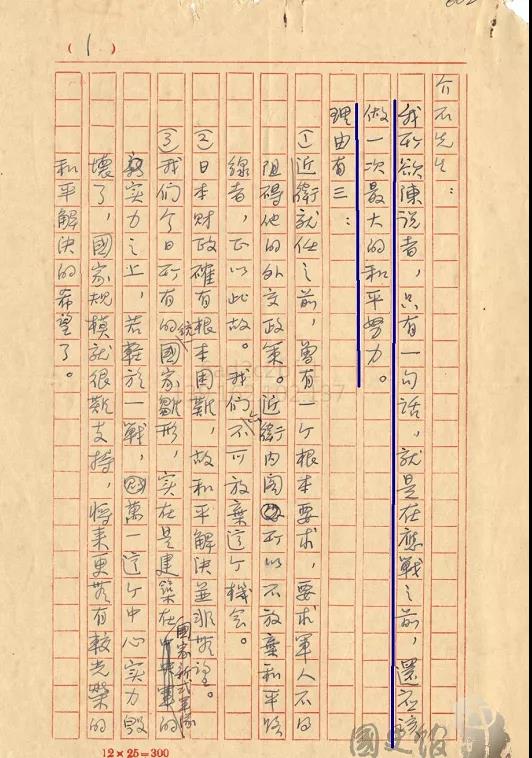 (1)
介石先生：
我所欲陳說者，只有一句話，就是在應戰之前，還应該
做一次最大的和平努力。
理由有三：
①近衛就任之前，曾有一个根本要求，要求軍人不得
阻碍他的外交政策。近衛內閣所以不放棄和平路
線者，正以此故。我们不可放棄這个機会。
②日本財政確有根本困難，故和平解決並非無望。
③我们今日所有的統一國家雛形，实在是建築在國家新式軍隊的
实力之上，若輕於一戰，萬一這个中心实力毀
壞了，國家規模就很難支持，將來更無有較光榮的
和平解決的希望了。
12×25=300
國史館